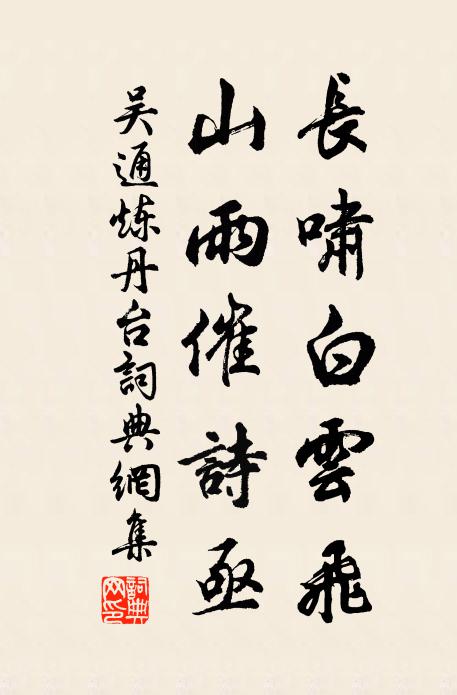 長嘯白雲飛
山雨催詩亟
吴通炼丹台詞典網集
詞典網印